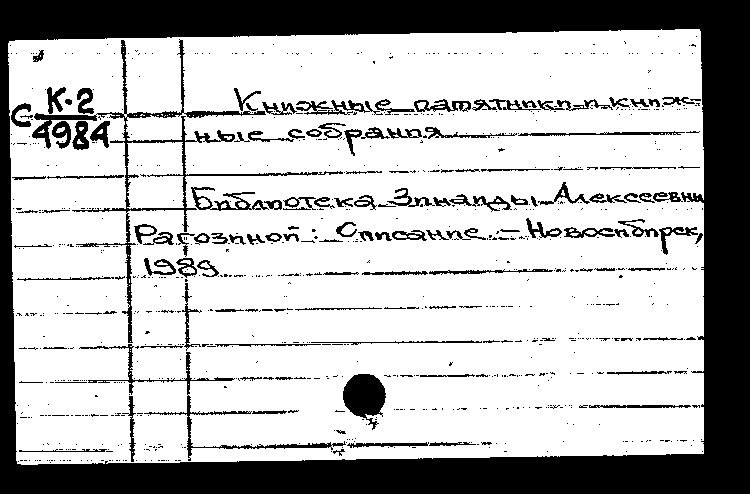 С К-2
4984
Книжные памятники и книж-
ные собрания
Библиотека Зинаиды Алексеевны
Рагозиной: Описание. – Новосибирск,
1989